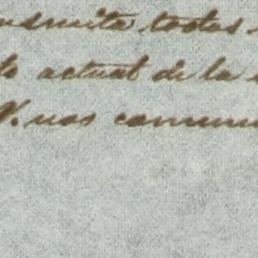 nsmita todas
to actual de la
V. nos comuni